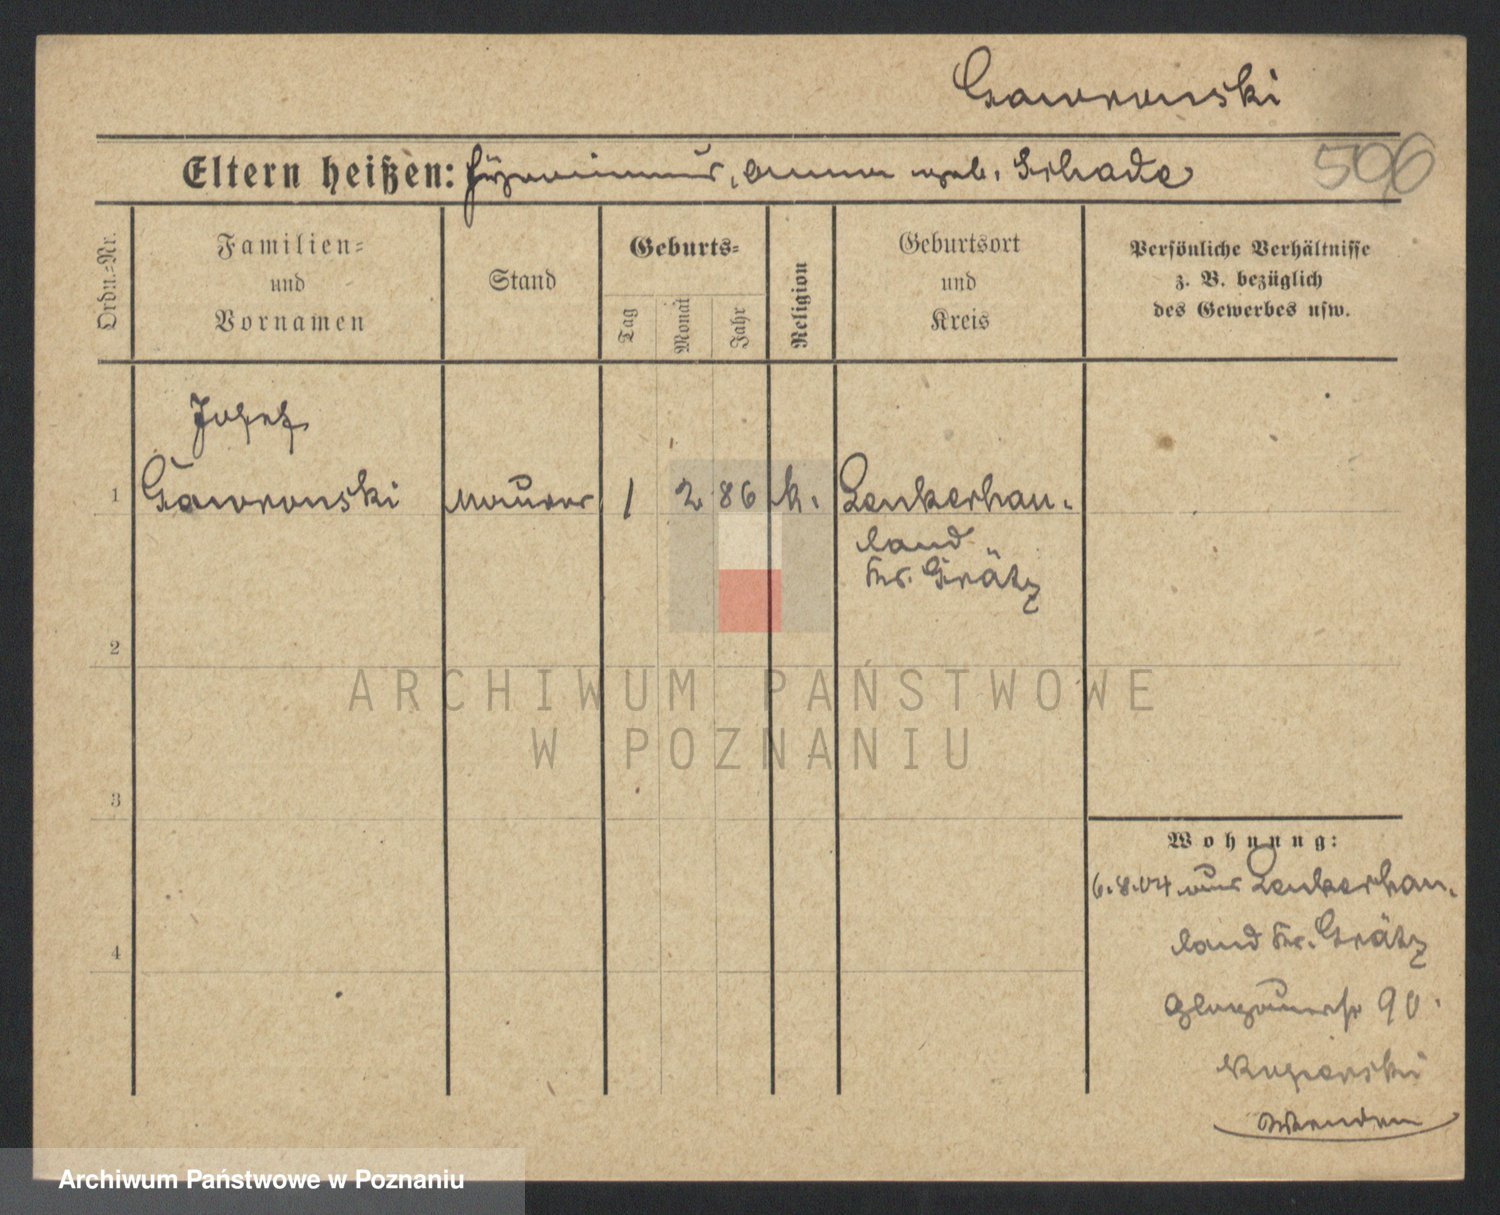 Gaworonski
Eltern heißen: Hyronimus, Anna geb. Schade
596
Ordn.=Nr.
Familien=
und
Vornamen
Stand
Geburts=
Tag
Monat
Jahr
Religion
Geburtsort
und
Kreis
Persönliche Verhältnisse
z. B. bezüglich
des Gewerbes usw.
Josef
1 Gaworonski Maurer 1 2 86 k. Lenkerhau-
land
Kr. Grätz
2
ARCHIWUM PAŃSTWOWE
W POZNANIU
3
Wohnung:
6.8.04 aus Lenkerhau-
land Kr. Grätz
4
Glogauerstr 90.
Wenden
Archiwum Państwowe w Poznaniu